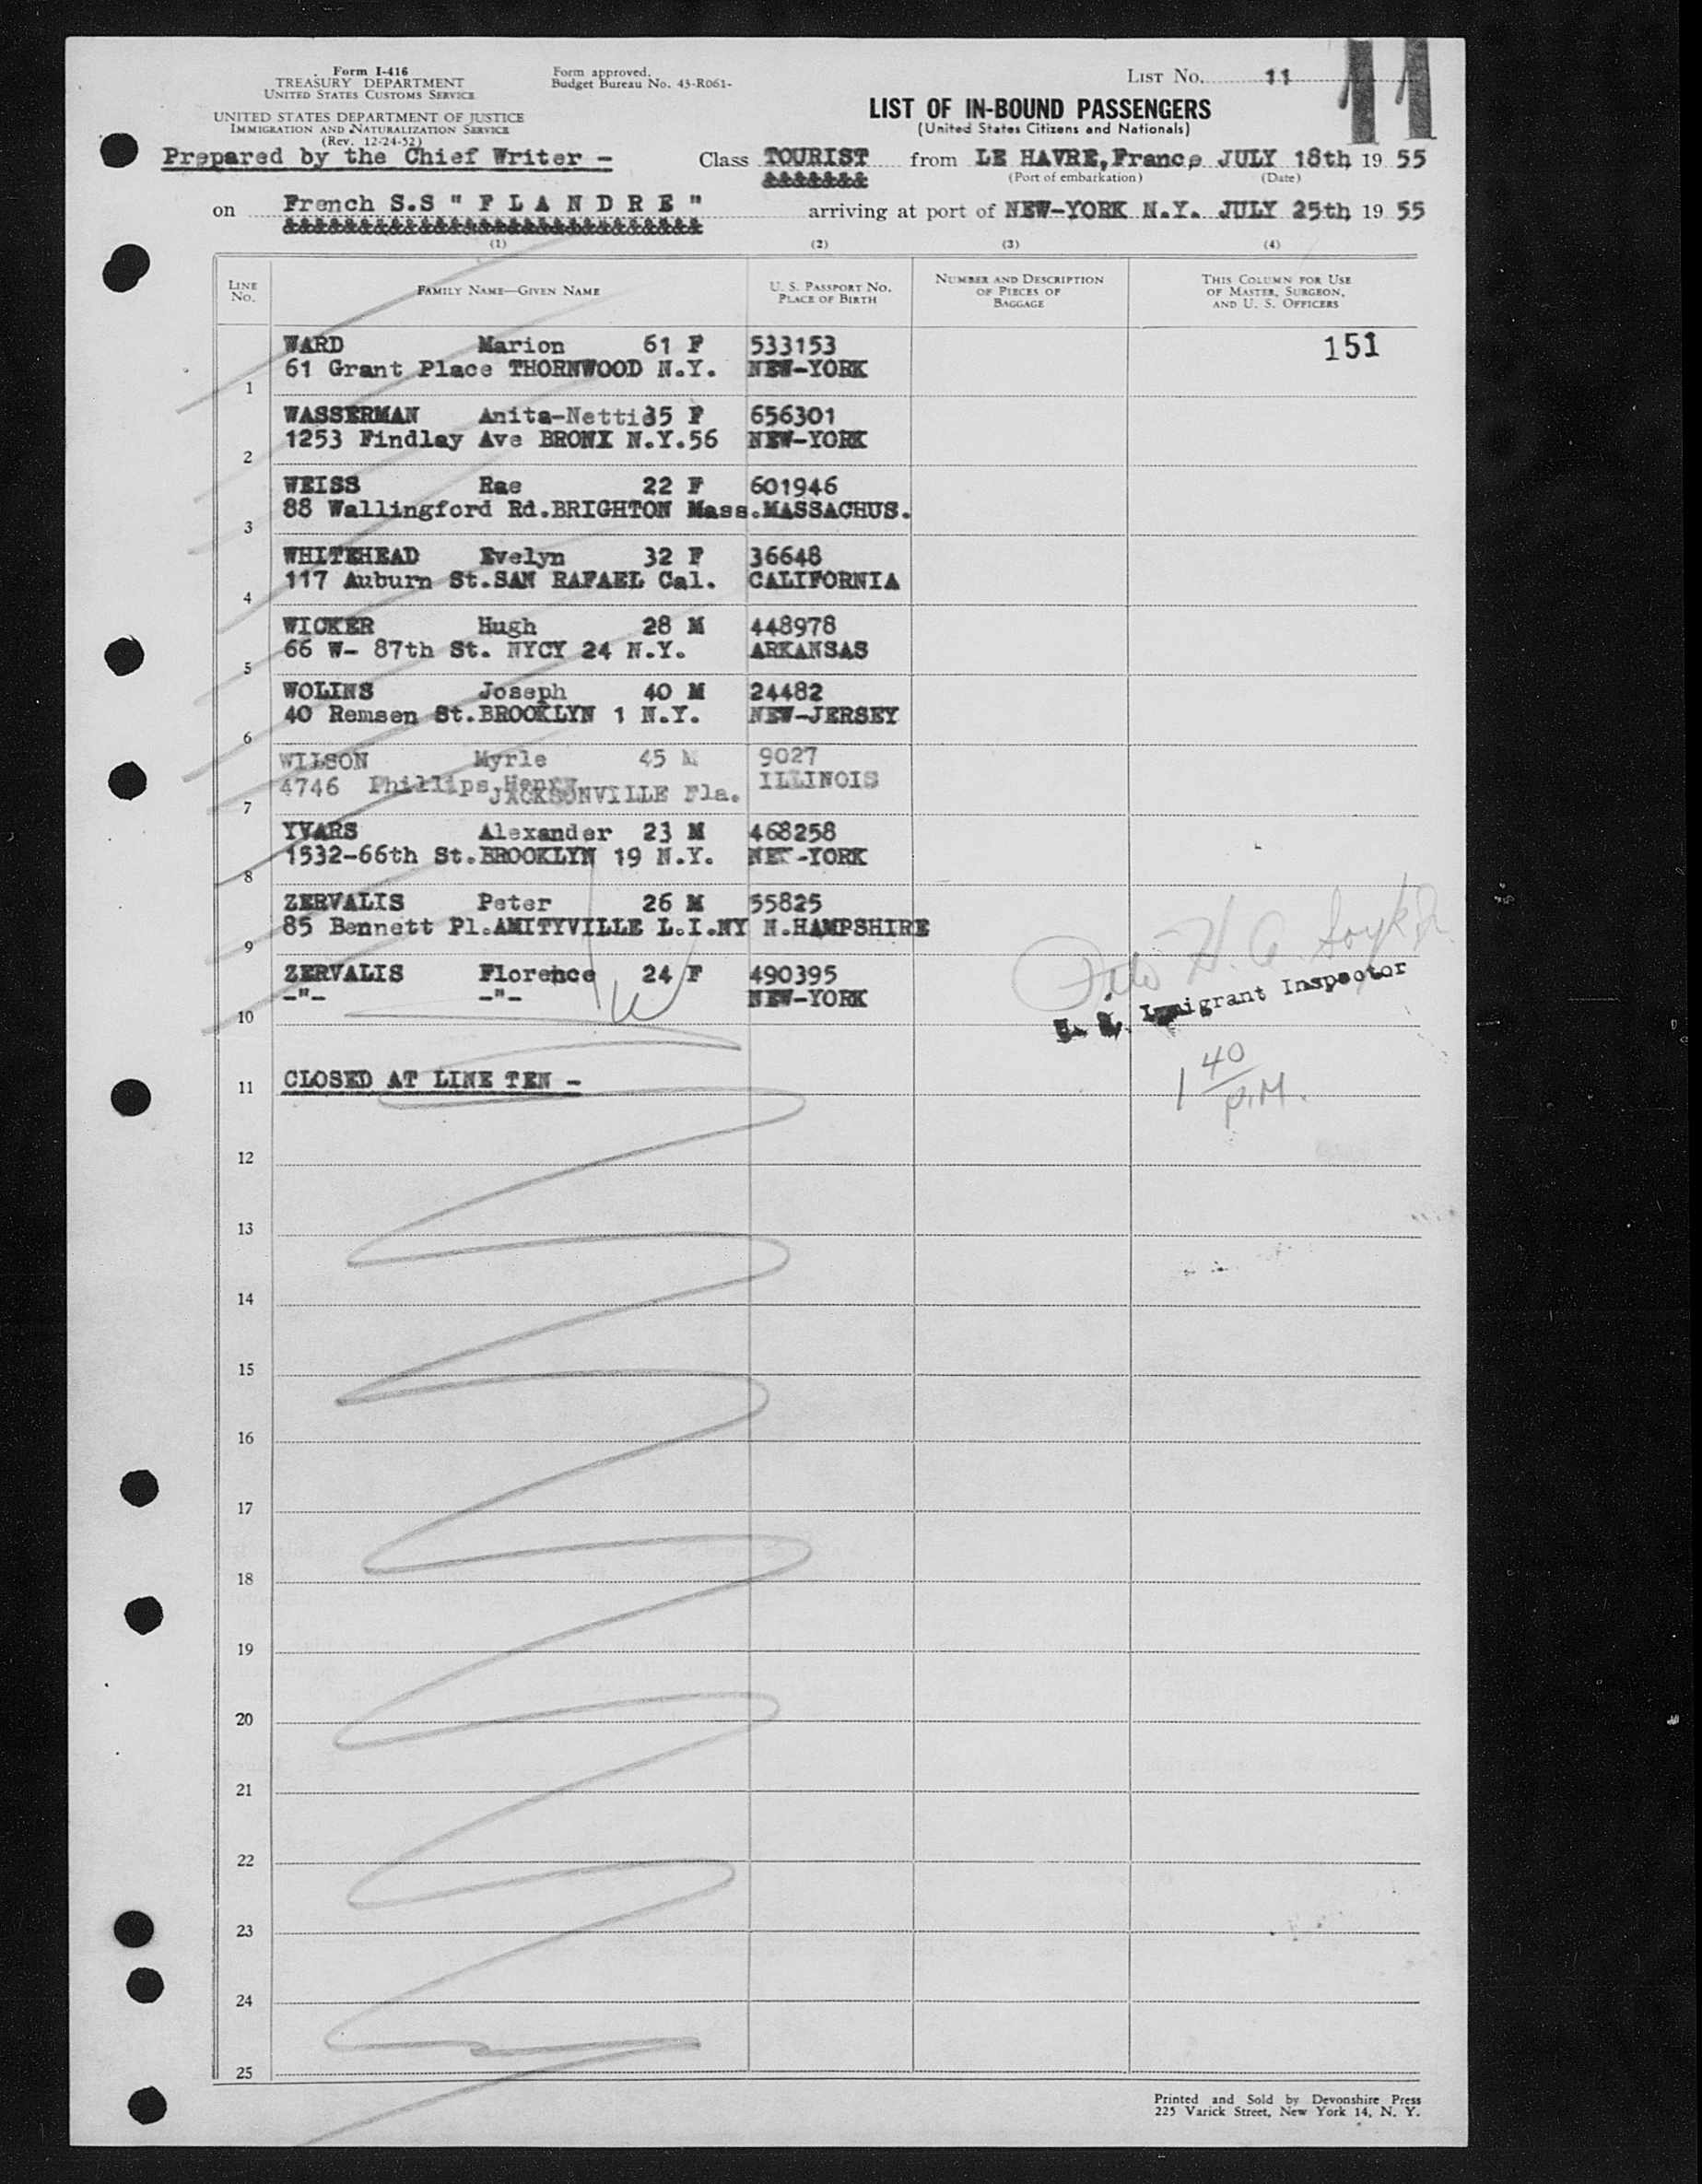 Form I-416
TREASURY DEPARTMENT
UNITED STATES CUSTOMS SERVICE
UNITED STATES DEPARTMENT OF JUSTICE
IMMIGRATION AND NATURALIZATION SERVICE
(Rev. 12-24-52)
Form approved.
Budget Bureau No. 43-R061-
LIST NO. 11
11
LIST OF IN-BOUND PASSENGERS
(United States Citizens and Nationals)
Prepared by the Chief Writer -
Class TOURIST from LE HAVRE, France JULY 18th, 19 55
&&&&&&& (Port of embarkation) (Date)
on French S.S " F L A N D R E " arriving at port of NEW-YORK N.Y. JULY 25th, 19 55
(1) (2) (3) (4)
LINE NO. FAMILY NAME—GIVEN NAME U. S. PASSPORT NO. PLACE OF BIRTH NUMBER AND DESCRIPTION OF PIECES OF BAGGAGE THIS COLUMN FOR USE OF MASTER, SURGEON, AND U. S. OFFICERS
WARD Marion 61 F 533153 151
61 Grant Place THORNWOOD N.Y. NEW-YORK
1
WASSERMAN Anita-Netti 35 F 656301
1253 Findlay Ave BRONX N.Y.56 NEW-YORK
2
WEISS Rae 22 F 601946
88 Wallingford Rd.BRIGHTON Mass.MASSACHUS.
3
WHITEHEAD Evelyn 32 F 36648
117 Auburn St.SAN RAFAEL Cal. CALIFORNIA
4
WICKER Hugh 28 M 448978
66 W- 87th St. NYCY 24 N.Y. ARKANSAS
5
WOLINS Joseph 40 M 24482
40 Remsen St.BROOKLYN 1 N.Y. NEW-JERSEY
6
WILSON Myrle 45 M 9027
4746 Phillips Henry JACKSONVILLE Fla. ILLINOIS
7
YVARS Alexander 23 M 468258
1532-66th St.BROOKLYN 19 N.Y. NEW-YORK
8
ZERVALIS Peter 26 M 55825
85 Bennett Pl.AMITYVILLE L.I.NY N.HAMPSHIRE
9
ZERVALIS Florence 24 F 490395
-"- -"- NEW-YORK
10
U. S. Immigrant Inspector
1 40 P.M.
11 CLOSED AT LINE TEN -
12
13
14
15
16
17
18
19
20
21
22
23
24
25
Printed and Sold by Devonshire Press
225 Varick Street, New York 14, N. Y.